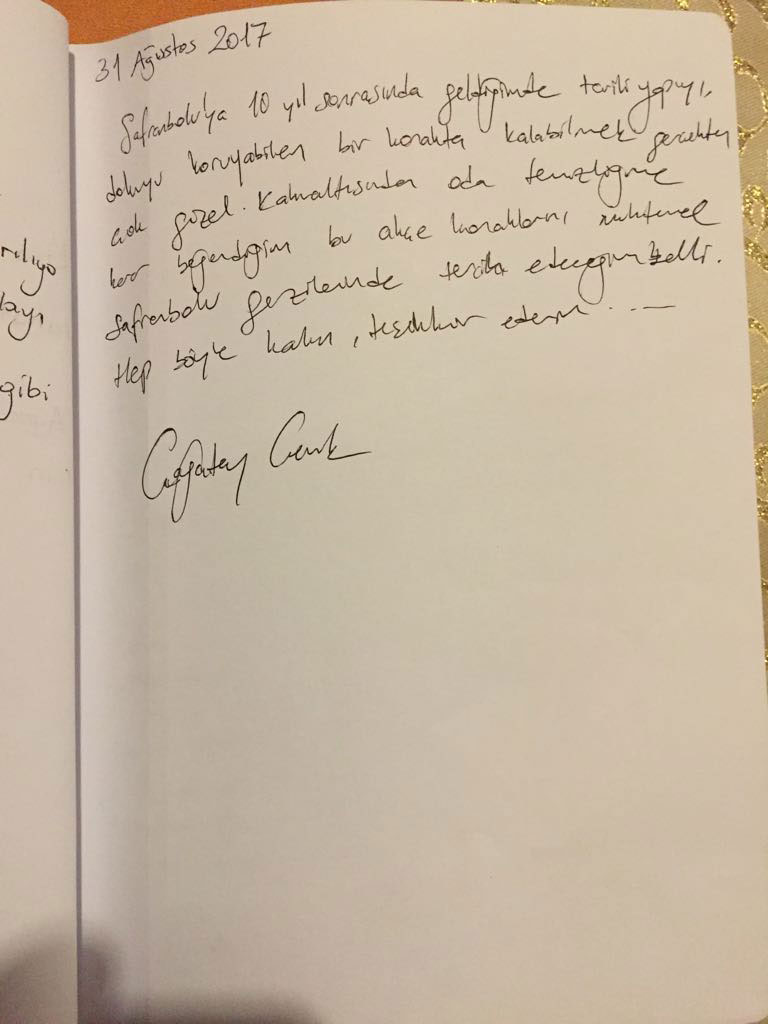 31 Ağustos 2017
Safranbolu'ya 10 yıl sonrasında geldiğimde tarihi yapıyı,
dokuyu koruyabilen bir konakta kalabilmek gerçekten
çok güzel. Kahvaltısından oda temizliğine
kadar beğendiğim bu akçe konaklarını muhtemel
Safranbolu gezilerimde tercih edeceğim belli.
Hep böyle kalın, teşekkür ederim...
Çağatay
rılıyo
bayı
gibi